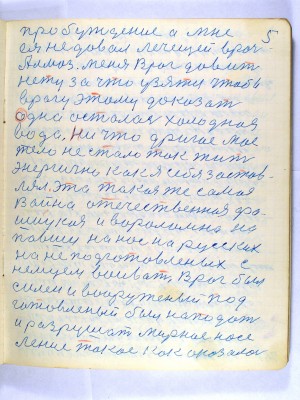 5
пробуждение а мне
ея не довал лечещей врач
Алмаз. меня Враг довит
нету за что узяти чтобы
врагу этому доказат
одна осталас холодная
вода. Ни что другое мое
тело не стало так жит
энергично как я себя застав
лял. Эта такая же самая
Вайна отечественная фа
шиская и вараломна на
павшы на нас на русских
на не подготовленых с
немцем воиват, Враг был
силен и вооруженый под
готовленый был нападат
и разрушат мирное насе
ление такое как